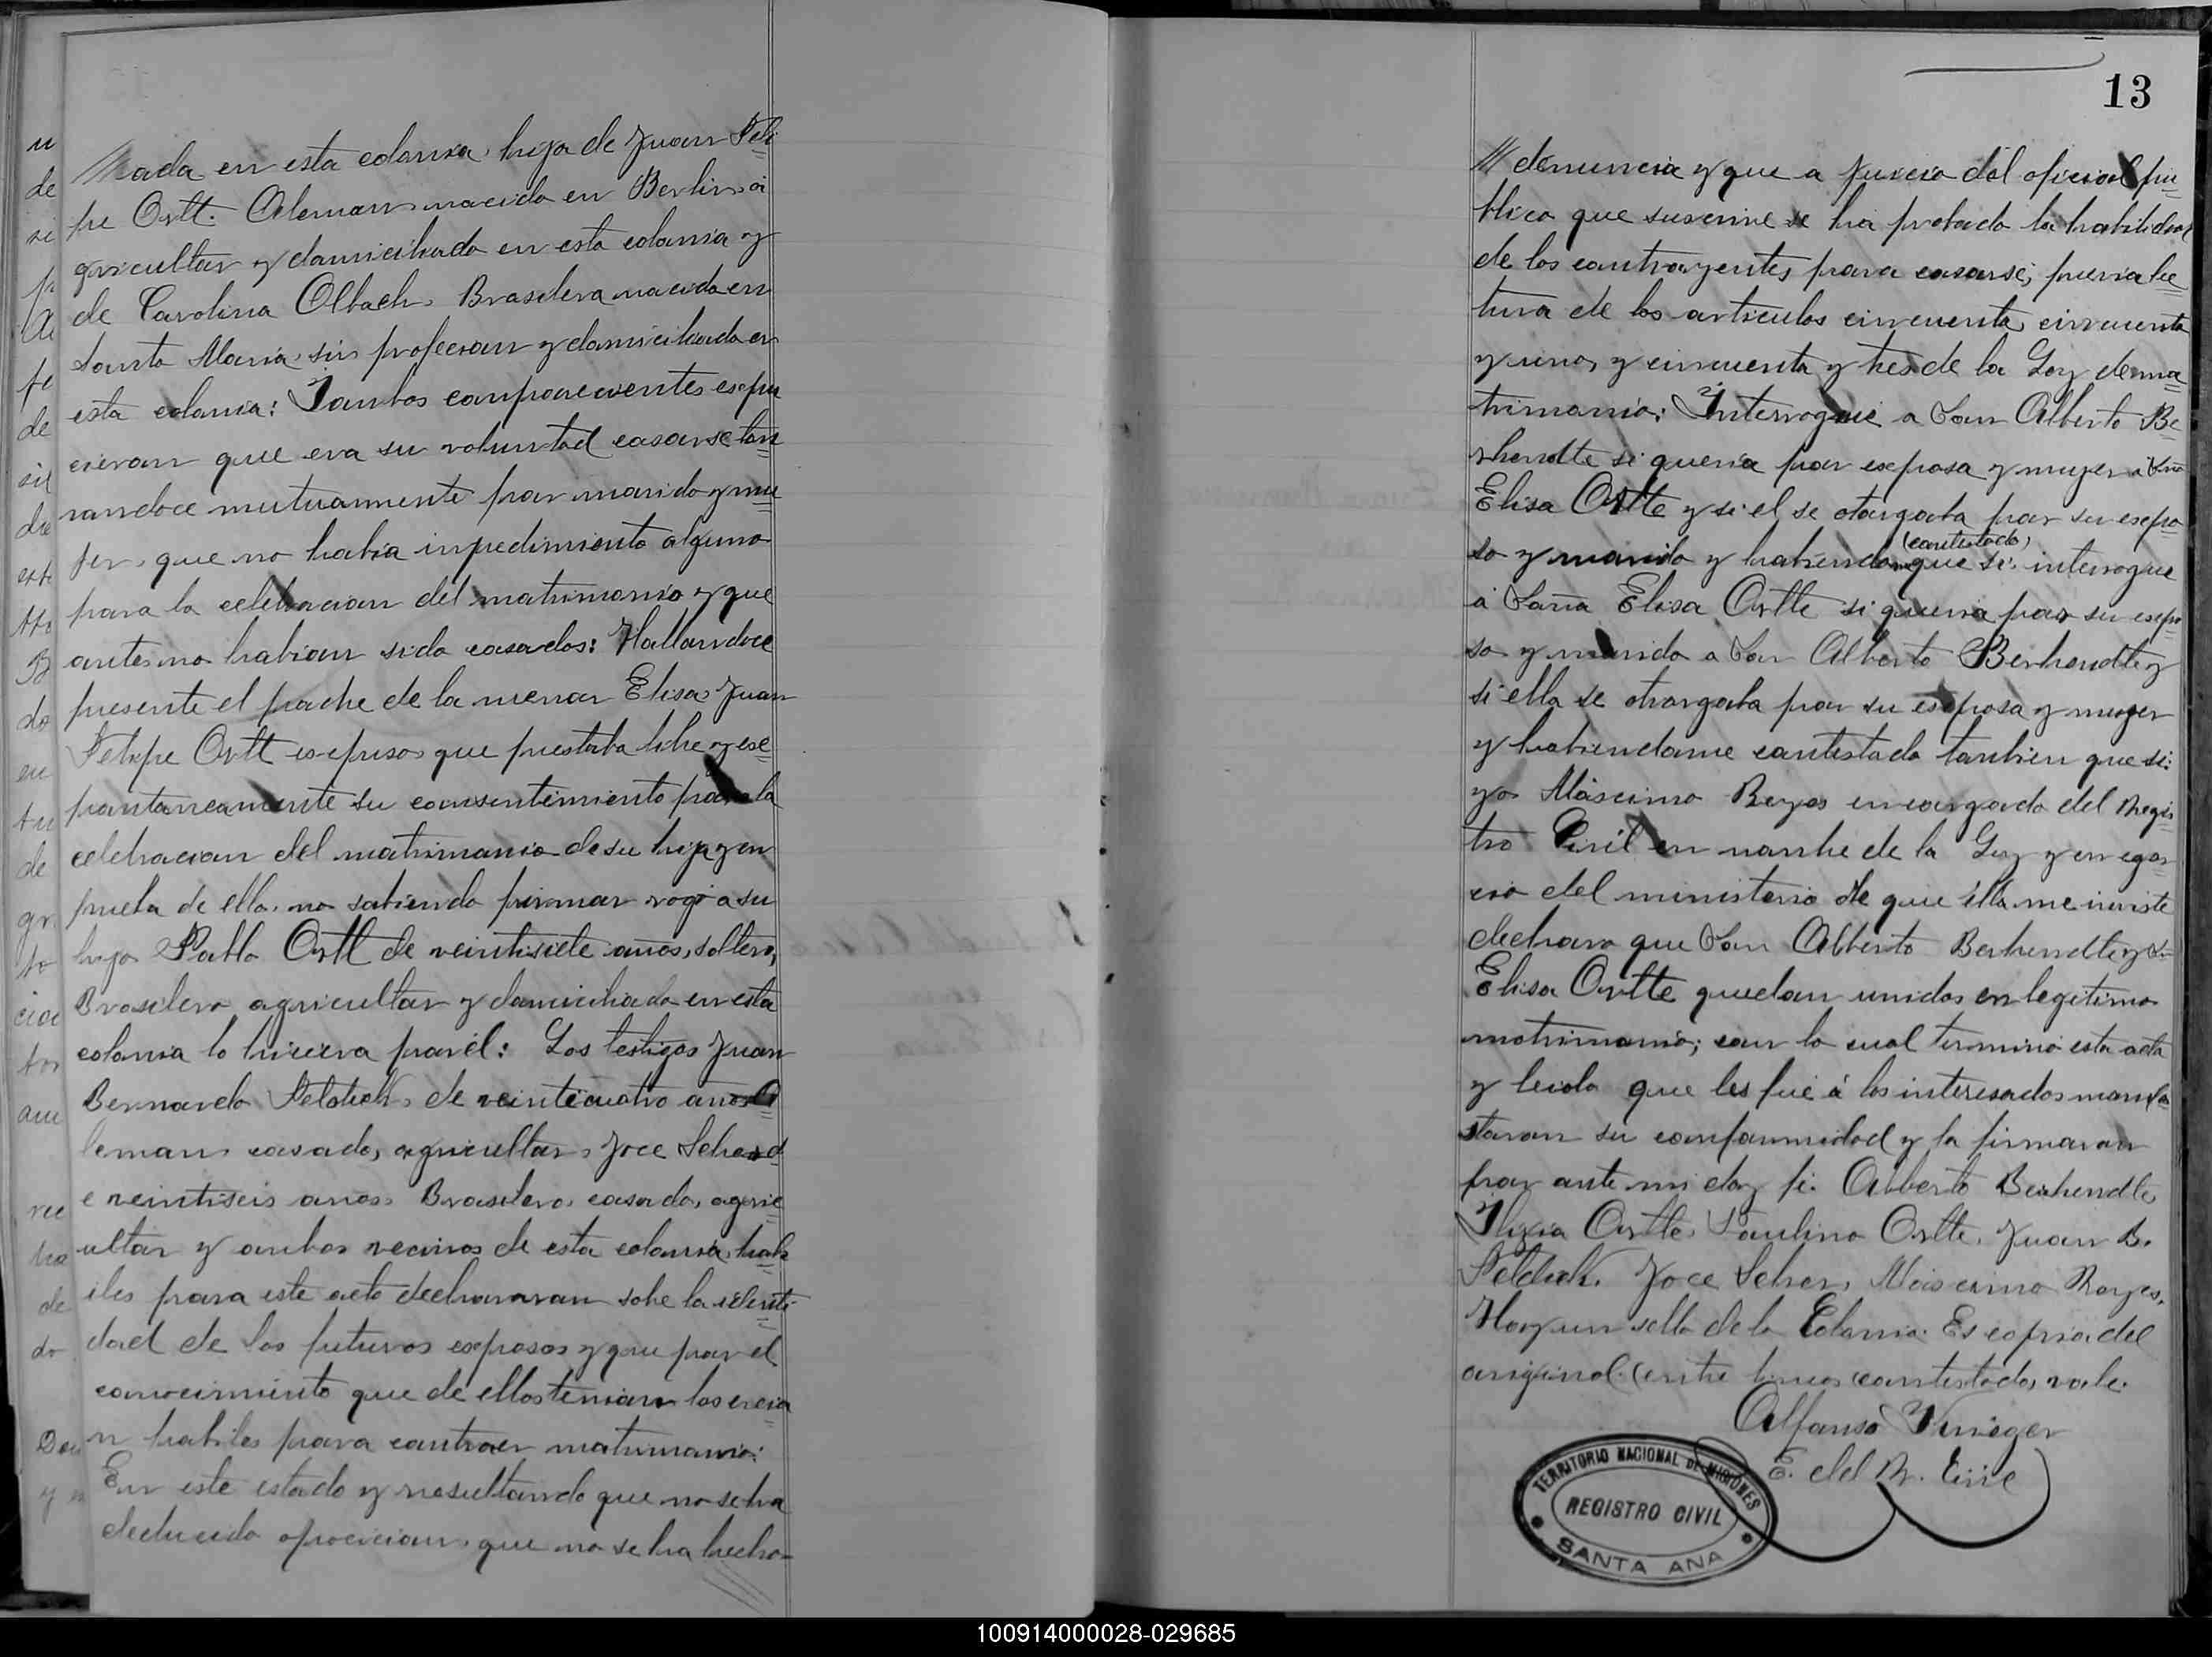 u
de
si
pa
Al
fe
de
sie
dre
este
B
do
en
tu
de
gr
to
cion
tor
am
rec
tra
de
do
Don
y
Nada en esta colonia, hija de Juan Feli
pe Ortt. Aleman nacido en Berlin a
gricultor y domiciliado en esta colonia y
de Carolina Olbach. Brasilera nacida en
Santa Maria, sin profecion y domiciliada en
esta colonia: Y ambos conparecientes espu
cieron que era su voluntad casarse tom
randoce mutuamente por marido y mu
jer, que no habia inpedimiento alguno
para la celebracion del matrimonio y que
antes no habian sido casados: Hallandoce
presente el padre de la menor Elisa, Juan
Felipe Ortt espreso que prestaba libre y es
pontaneamente su consentimiento para la
celebracion del matrimonio de su hija y en
prueba de ello, no sabiendo firmar rogó a su
hijo Pablo Ortt de veintisiete años, soltero,
Brasilero agricultor y domiciliado en esta
colonia lo hiciera por él: Los testigos Juan
Bernardo Feldick, de veinticuatro años A
leman, casado, agricultor, Joce Scher d
e veintiseis años, Brasilero, casado, agric
ultor y ambos vecinos de esta colonia, hab
iles para este acto declararon sobre la identi
dad de los futuros esposos y que por el
conocimiento que de ellos tenian los creia
n habiles para contraer matrimonio:
En este estado y resultando que no se ha
deducido oposicion, que no se ha hecho
13
denuncia y que a juicio del oficial pu
blico que suscrive se ha probado la habilidad
de los contrayentes para casarse, previa lec
tura de los articulos cincuenta, cincuenta
y uno, y cincuenta y tres de la Ley de ma
trimonio: Interrogué a Don Alberto Be
rhendte si queria por esposa y mujer a Doña
Elisa Ortte y si el se otorgaba por su espo
(contestado)
so y marido y habiendome que si, interrogue
a Doña Elisa Ortte si queria por su espo
so y marido a Don Alberto Berhendte y
si ella se otrorgaba por su esposa y mujer
y habiendome contestado tanbien que si:
yo Máscimo Reyes encargado del Regis
tro Civil en nonbre de la Ley y en eger
cio del ministerio de que ella me inviste
declraro que Don Alberto Berhendte y Da
Elisa Ortte quedan unidos en legitimo
matrimonio; con lo cual terminó esta acta
y leida que les fué á los interesados manife
staron su conformidad y la firmaron
por ante mi doy fé. Alberto Berhendte,
Ortte. Paulino Ortte. Juan B.
Feldick. Joce Scher, Máscimo Reyes.
Hay un sello de la Colonia. Es copia del
original. (entre lineas contestado, vale.
Alfonso
E. del R. Civil
TERRITORIO NACIONAL DE MISIONES
REGISTRO CIVIL
SANTA ANA
100914000028-029685